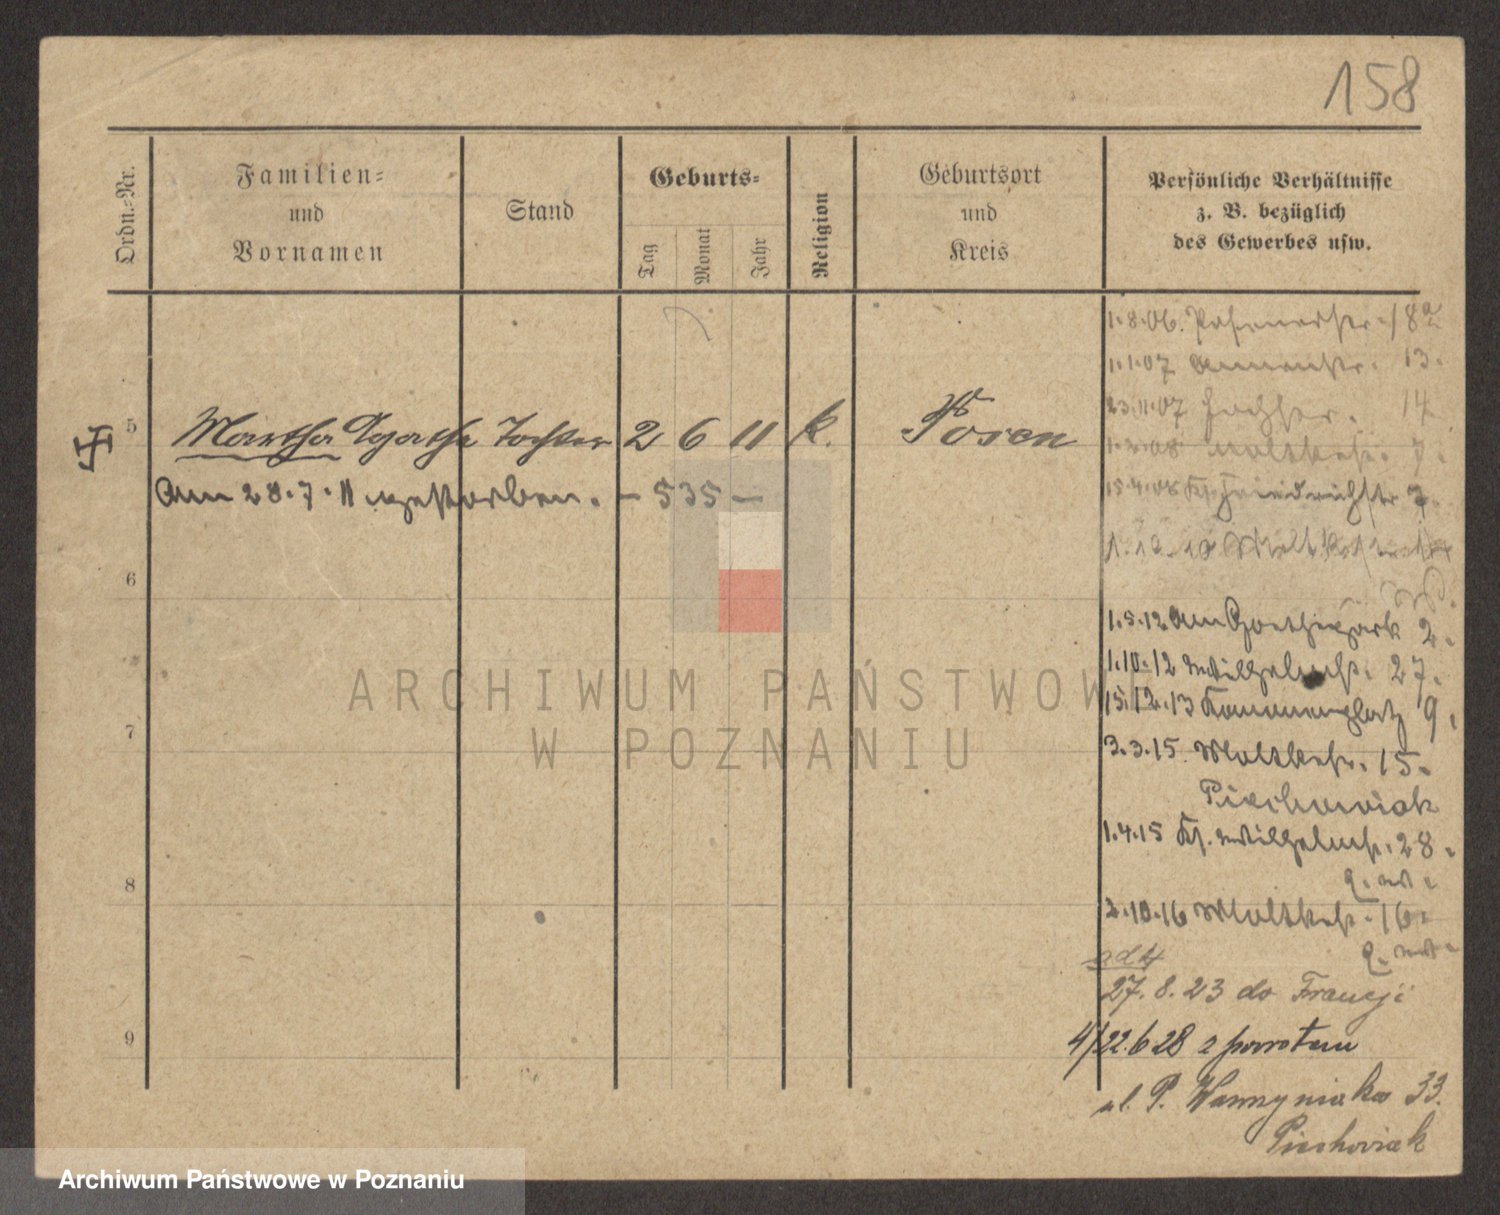 158
Ordn.-Nr.
Familien-
und
Vornamen
Stand
Geburts-
Tag
Monat
Jahr
Religion
Geburtsort
und
Kreis
Persönliche Verhältnisse
z. B. bezüglich
des Gewerbes usw.
1.8.06. Posenerstr. 18a
1.1.07 13.
23.11.07 14
1.2.08 Moltkestr. 7.
5 Martha Agathe Tochter 2 6 11 k. Posen
Am 28.7.11 gestorben. - 535 -
15.4.08 Friedrichstr 7.
1.10.10 Moltkestr.
6
1.5.12 Am Goethepark 2.
1.10.12 Wilhelmstr. 27.
15.12.13 9.
7
3.3.15. Moltkestr. 15.
Piechowiak
1.4.15 Wilhelmstr. 28.
8
2.10.16 Moltkestr. 16.
ad 4
27.8.23 do Francji
9
4/22.6 28 z powrotem
ul. P. Wawrzyniaka 33.
Piechowiak
ARCHIWUM PAŃSTWOW
W POZNANIU
Archiwum Państwowe w Poznaniu